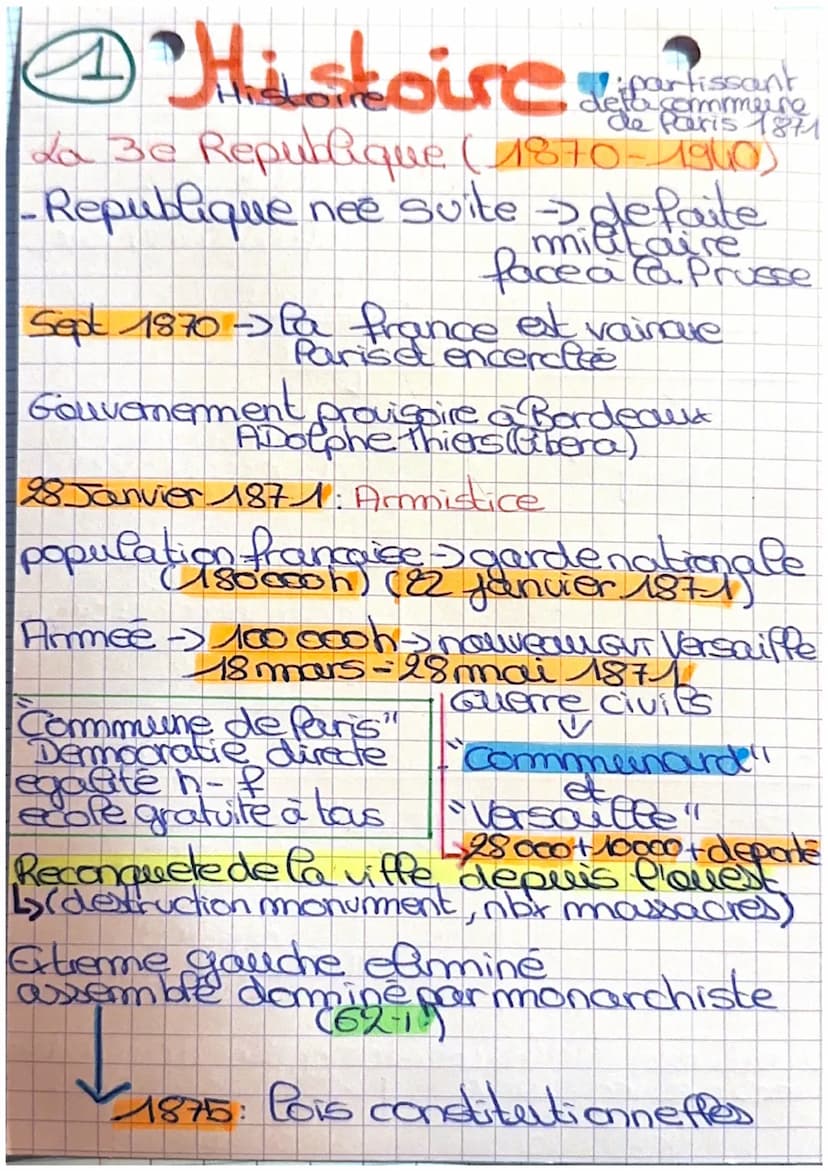 1 Histoire
Histoire
: partissant
de la commune
de Paris 1871
La 3e Republique (1870-1940)
- Republique neé suite -> defaite
militaire
face à la Prusse
Sept 1870 -> la france est vaincue
Paris et encerclée
Gouvernement provisoire à Bordeaux
ADolphe thiers (libera)
28 Janvier 1871 : Armistice
population française -> garde nationale
(180000h) (22 janvier 1871)
Armeé -> 100 000h -> nouveau GVT Versaille
18 mars - 28 mai 1871
"Commune de Paris"
Democratie directe
egalité h-f
ecole gratuite à tous
Guerre civils
↓
"Communard"
et
"Versaille"
28 000 + 10000 + deporté
Reconquete de la ville, depuis l'ouest
↳ (destruction monument, nbx massacres)
Extreme gauche eliminé
assemblé dominé par monarchiste
1875 : lois constitutionnelles